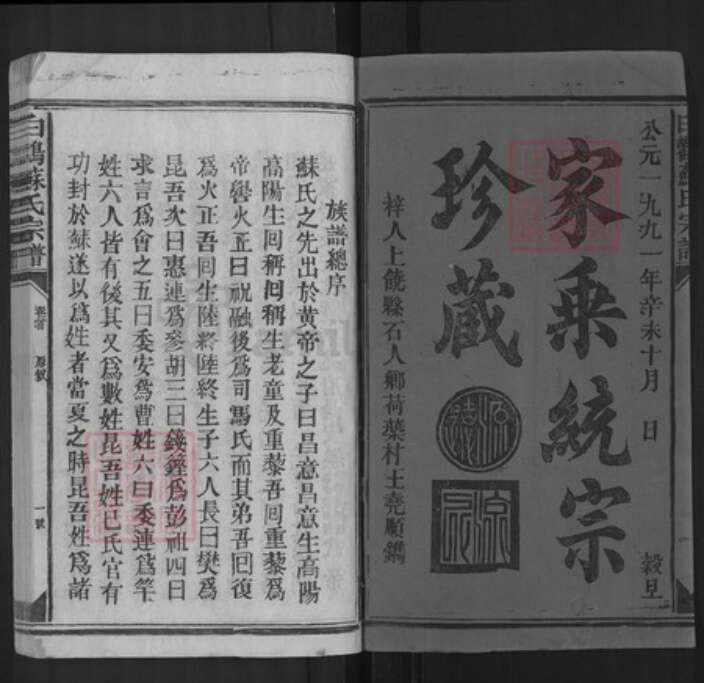 公元一九九一年辛未十月 日 穀旦
家乘統宗
珍藏
梓人上饒縣石人鄉荷葉村王堯順鐫
族譜總序
蘇氏之先出於黄帝之子曰昌意昌意生高陽
高陽生囘稱囘稱生老童及重藜吾囘重藜爲
帝嚳火正曰祝融後爲司馬氏而其弟吾囘復
爲火正吾囘生陸終陸終生子六人長曰樊爲
昆吾次曰惠連爲參胡三曰籛鏗爲彭祖四曰
求言爲會之五曰委安爲曹姓六曰委連爲羋
姓六人皆有後其又爲數姓昆吾姓巳氏官有
功封於蘇遂以爲姓者當夏之時昆吾姓爲諸
白鷂蘇氏宗譜
卷首
原叙
一號